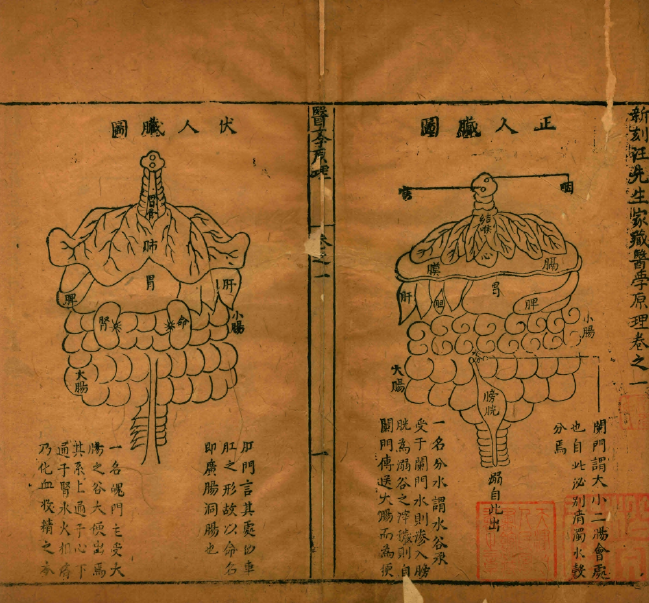 新刻汪先生家藏醫學原理卷之一
正人臟圖
咽
喉
肺
心
膈
膜
肝
胆
胃
脾
小腸
大腸
膀胱
溺自此出
闌門謂大小二腸會處
也自此泌别清濁水穀
分焉
一名分水謂水谷承
受于闌門水則滲入膀
胱為溺谷之滓穢則自
闌門傳送大腸而為便
醫學原理
卷之一
一
伏人臟圖
肺
胃
肝
脾
腎
命
小腸
大腸
肛門言其處似車
肛之形故以命名
即廣腸洞腸也
一名魄門主受大
腸之谷大便出焉
其系上通于心下
通于腎水火相
乃化血收精之本